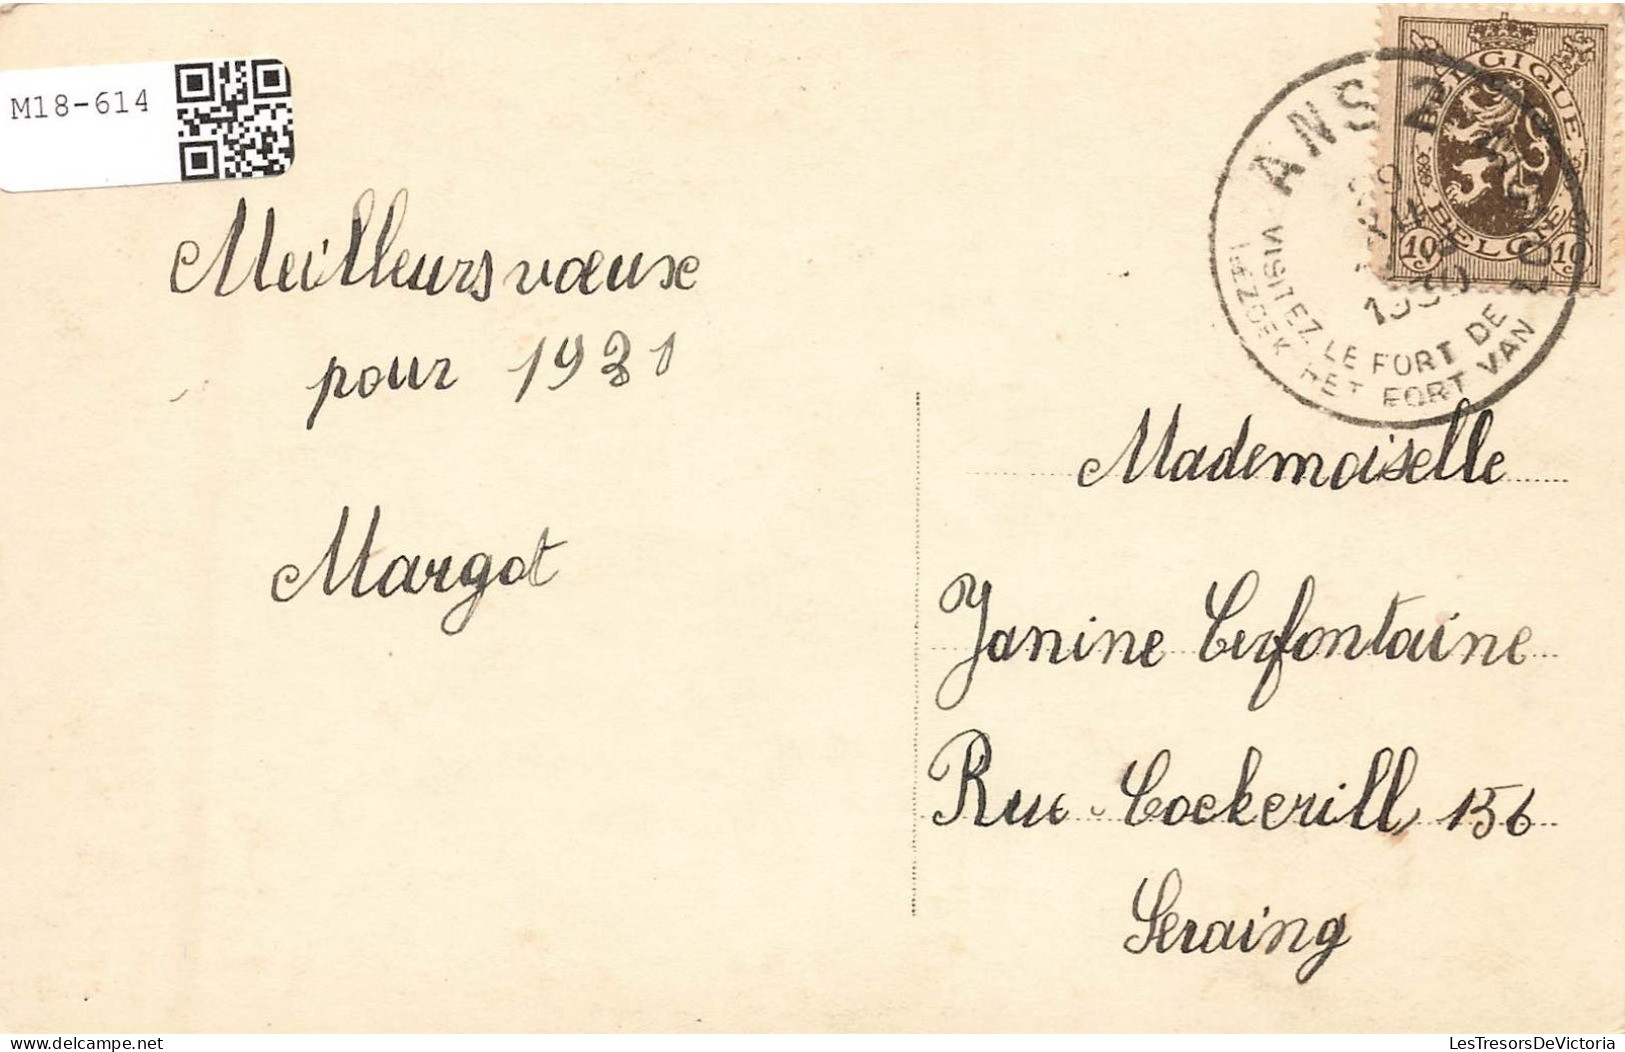 M18-614
BELGIQUE
BELGIË
10c 10c
ANS 2
1930
VISITEZ LE FORT DE
BEZOEK HET FORT VAN
LONCIN
Meilleurs vœux
pour 1931
Margot
Mademoiselle
Janine Lefontaine
Rue Cockerill 156
Seraing
delcampe.net
LesTresorsDeVictoria